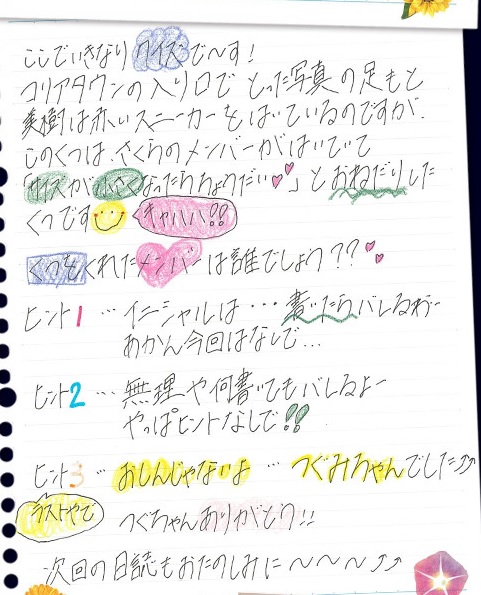 ここでいきなりクイズで〜す!
コリアタウンの入り口でとった写真の足もと
美樹は赤いスニーカーをはいているのですが、
このくつは、さくらのメンバーがはいていて
「サイズが小さくなったらちょうだい♥♥」とおねだりした
くつです キャハハ!!
くつをくれたメンバーは誰でしょう??♥♥
ヒント1 …イニシャルは…書いたらバレるわー
あかん今回はなしで…
ヒント2 …無理や何書いてもバレるよー
やっぱヒントなしで!!
ヒント3 …おしんじゃないよ …つぐみちゃんでした⤴⤴
ラストやで つぐちゃんありがとう!!
次回の日誌もおたのしみに〜〜〜⤴⤴